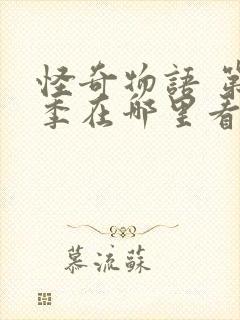 怪奇物語 第
季在哪里看
慕流蘇